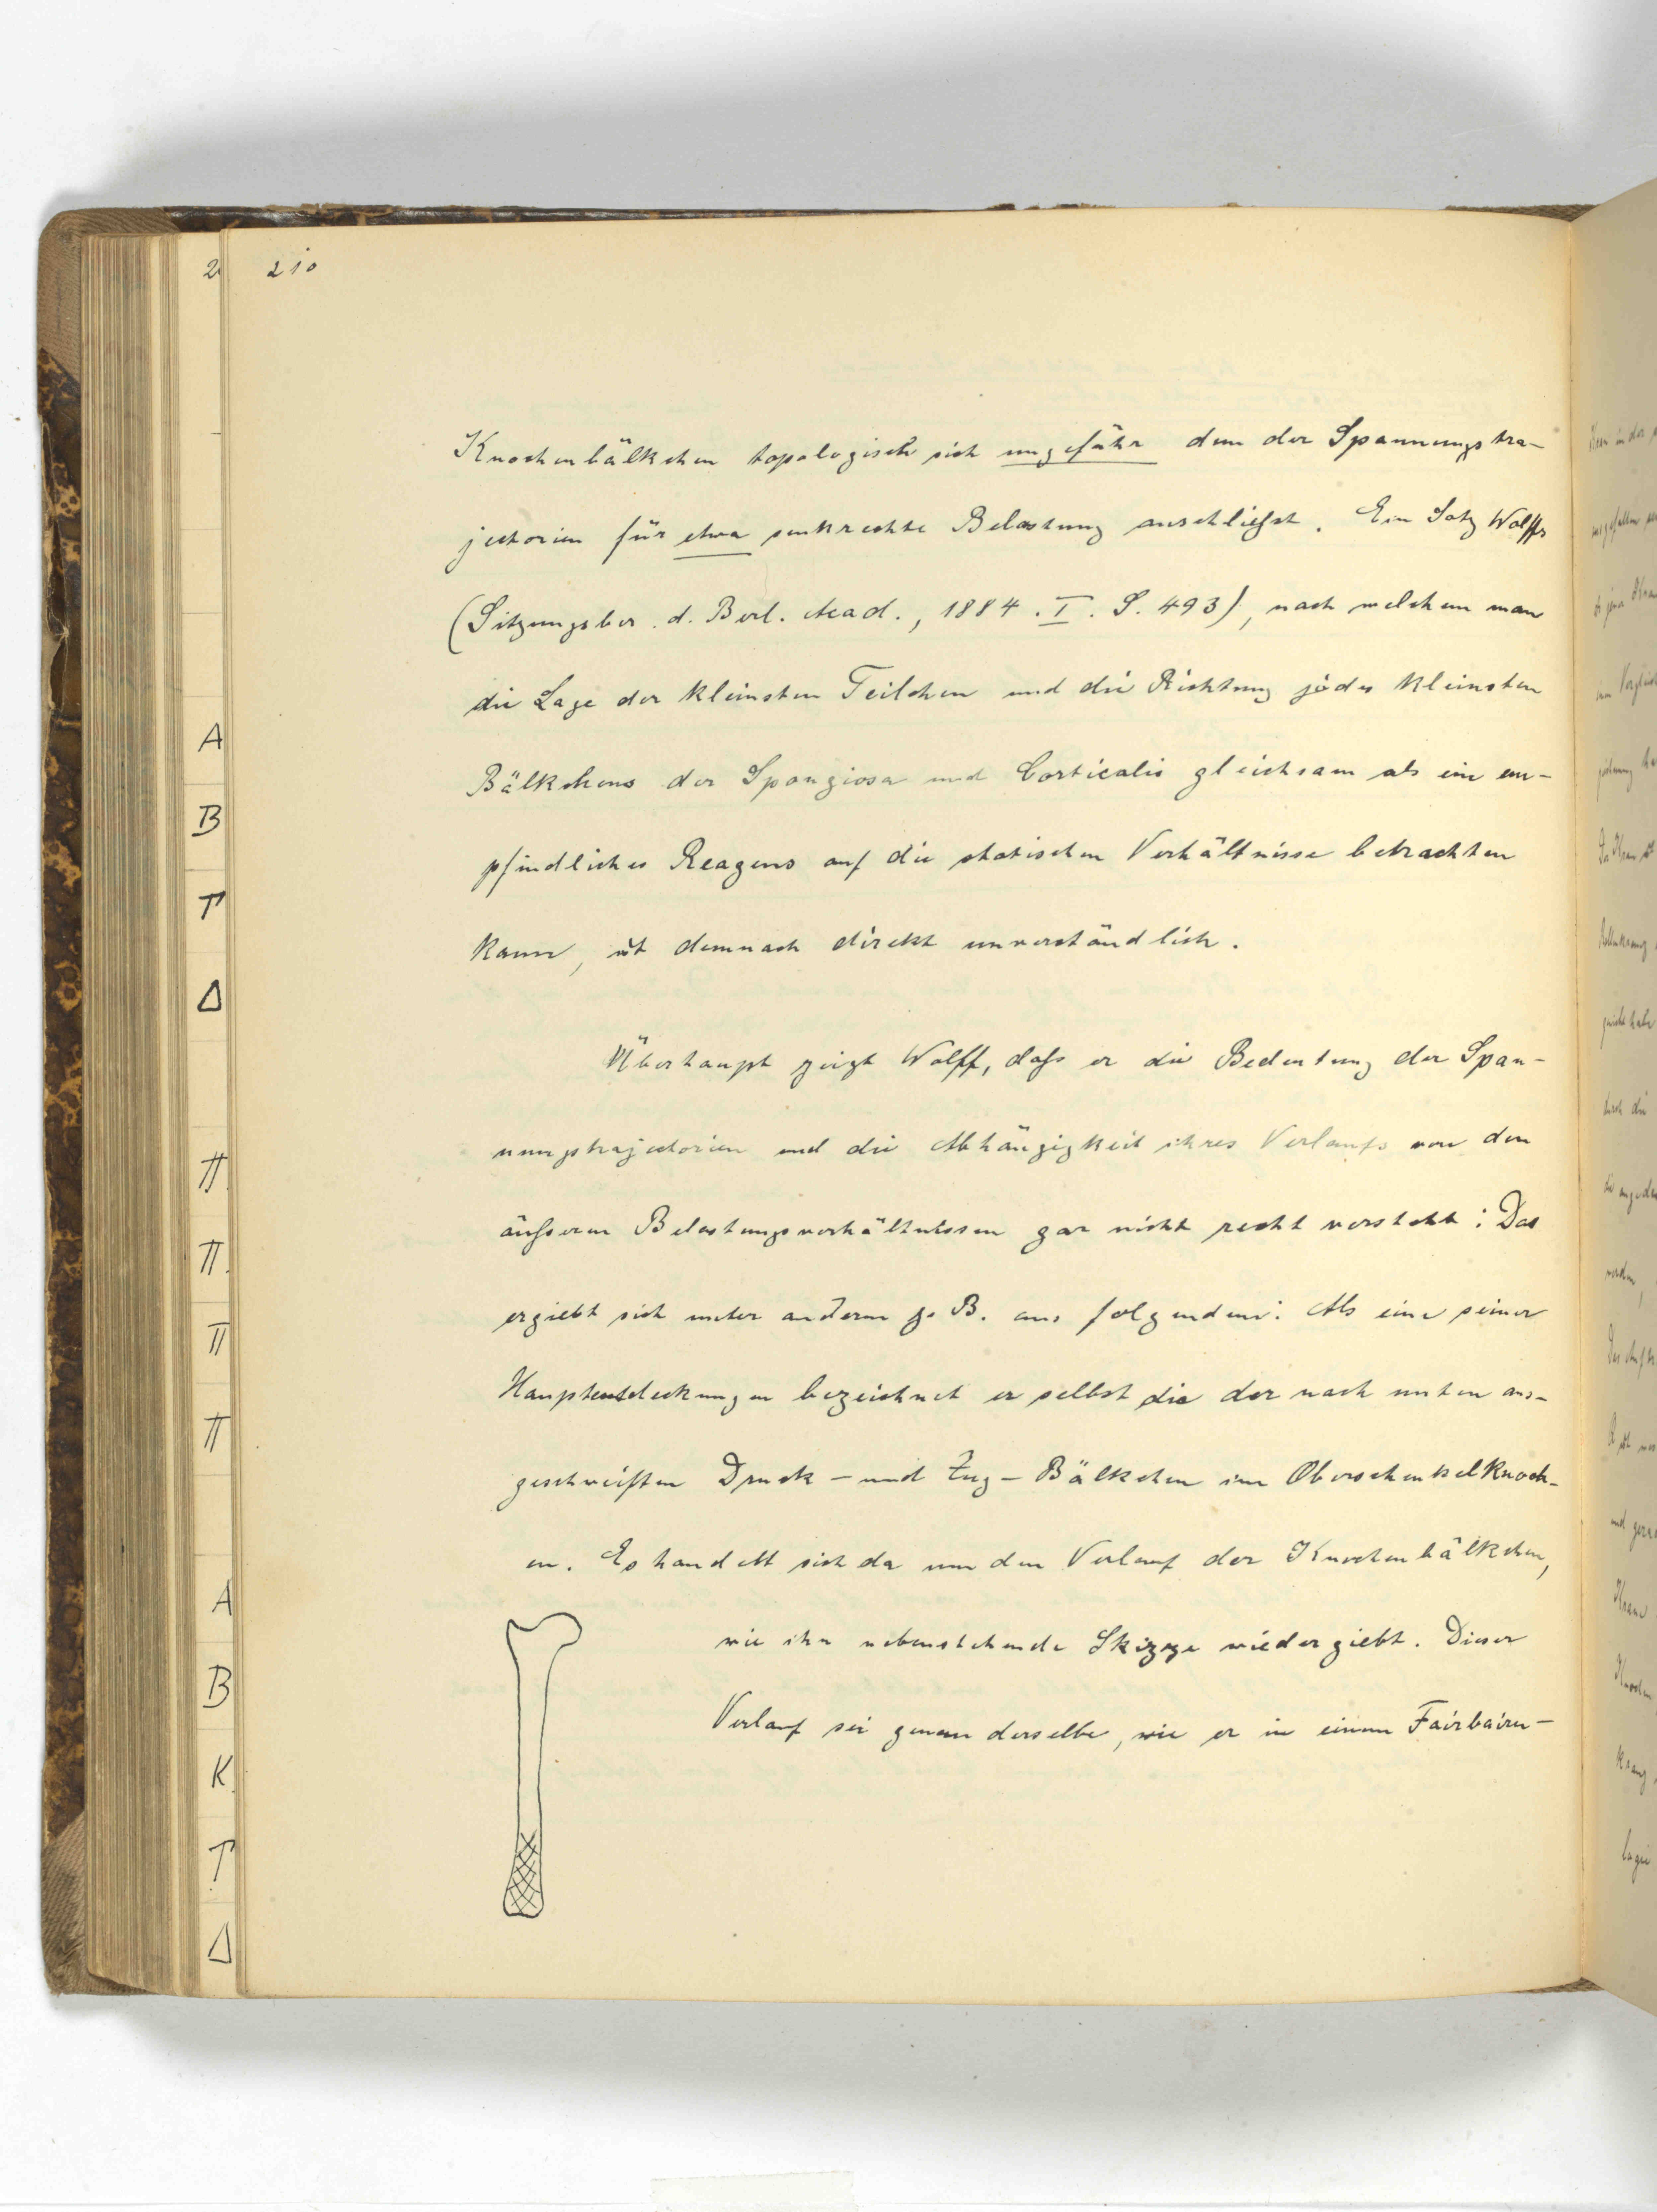 210
Knochenbälkchen topologisch sich ungefähr dem der Spannungstra-
jectorien für etwa senkrechte Belastung anschliefst. Ein Satz Wolffs
(Sitzungsber. d. Berl. Acad., 1884. I. S. 493), nach welchem man
die Lage der kleinsten Teilchen und die Richtung jedes kleinsten
Bälkchens der Spongiosa und Corticalis gleichsam als ein em-
pfindliches Reagens auf die statischen Verhältnisse betrachten
kann, ist demnach direkt unverständlich.
Überhaupt zeigt Wolff, dafs er die Bedeutung der Span-
nungstrajectorien und die Abhängigkeit ihres Verlaufs von den
äufseren Belastungsverhältnissen gar nicht recht versteht: Das
ergiebt sich unter anderm z. B. aus folgendem: Als eine seiner
Hauptentdeckungen bezeichnet er selbst die der nach unten aus-
geschweiften Druck- und Zug-Bälkchen im Oberschenkelknoch-
en. Es handelt sich da um den Verlauf der Knochenbälkchen,
wie ihn nebenstehende Skizze wiedergiebt. Dieser
Verlauf sei genau derselbe, wie er in einem Fairbairn-
A
B
Γ
Δ
Π
Π
Π
Π
A
B
K
Γ
Δ